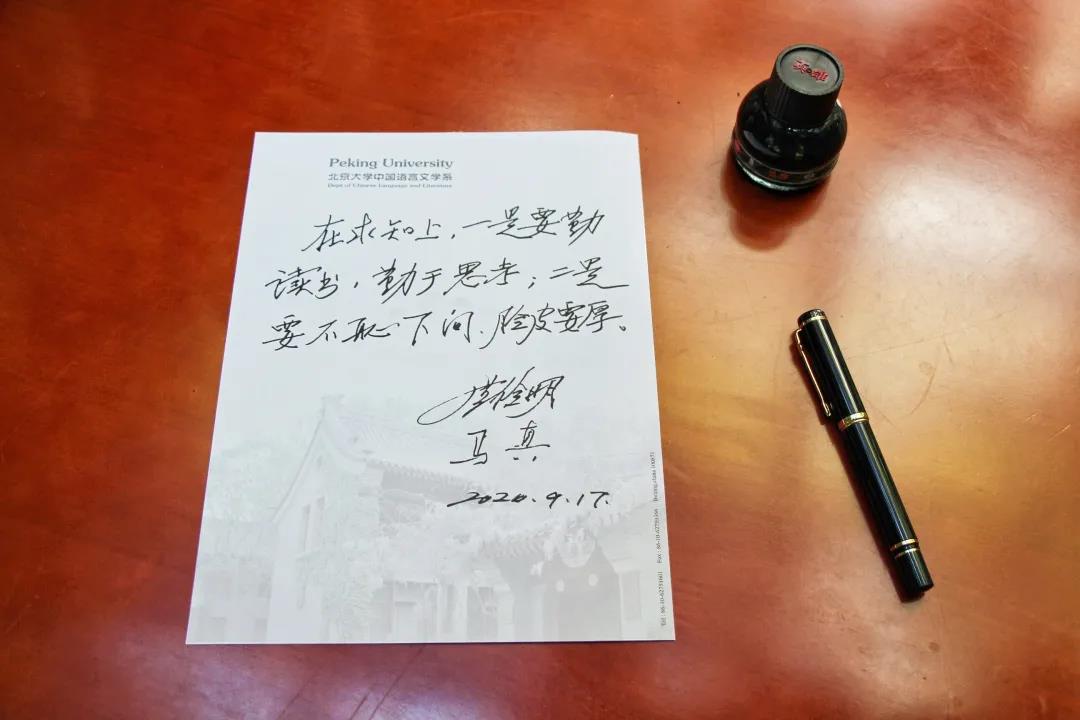 Peking University
北京大学中国语言文学系
Dept of Chinese Language and Literature
在求知上，一是要勤
读书，勤于思考；二是
要不耻下问、脸皮要厚。
陆俭明
马真
2020.9.17.
英雄